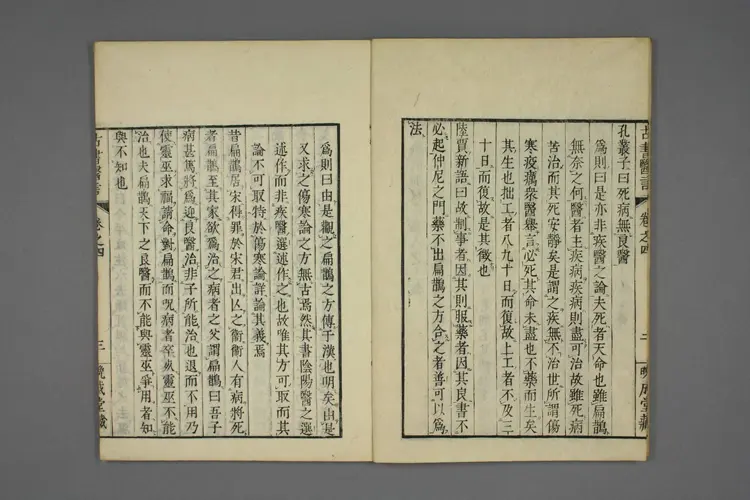 孔叢子曰死病無良醫
爲則曰是亦非疾醫之論夫死者天命也雖扁鵲
無奈之何醫者主疾病疾病則盡可治故雖死病
苦治而其死安靜矣是謂之疾無不治世所謂傷
寒疫癘衆醫舉言必死其命未盡也不藥而生矣
其生也拙工者八九十日而復故上工者不及三
十日而復故是其徵也
陸賈新語曰故制事者因其則服藥者因其良書不
必起仲尼之門藥不出扁鵲之方合之者善可以爲
法
古書醫言
卷之四
二
晩成堂藏
爲則曰由是觀之扁鵲之方傳于漢也明矣由是
又求之傷寒論之方無古焉然其書陰陽醫之選
述作而非疾醫選述作之也故唯其方可取而其
論不可取特於傷寒論詳論其義焉
昔扁鵲居宋得罪於宋君出亡之衞衞人有病將死
者扁鵲至其家欲爲治之病者之父謂扁鵲曰吾子
病甚篤將爲迎良醫治非子所能治也退而不用乃
使靈巫求福請命對扁鵲而咒病者卒死靈巫不能
治也夫扁鵲天下之良醫而不能與靈巫爭用者知
與不知也
古書醫言
卷之四
三
晩成堂藏